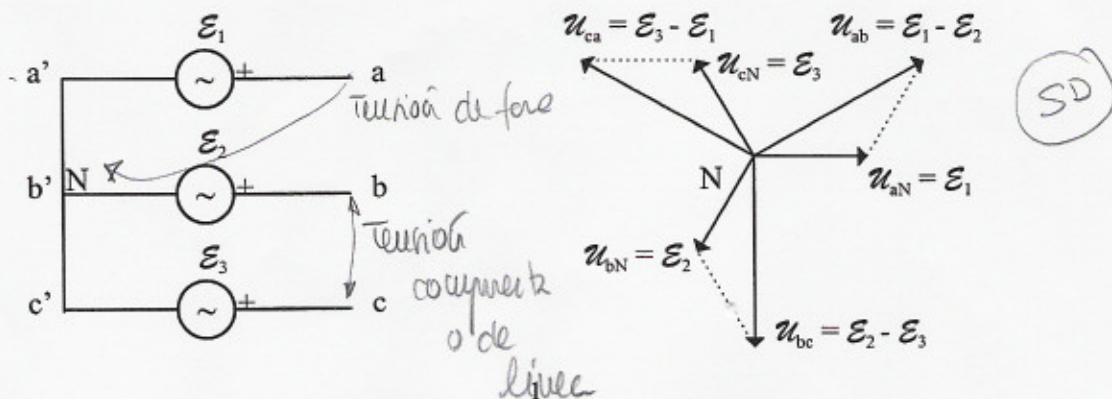 ℰ₁
a' ~ + a
Tensión de fase
ℰ₂
b' N ~ + b
Tensión
compuesta
o de
línea
ℰ₃
c' ~ + c
𝒰ca = ℰ₃ - ℰ₁
𝒰ab = ℰ₁ - ℰ₂
𝒰cN = ℰ₃
N
𝒰aN = ℰ₁
𝒰bN = ℰ₂
𝒰bc = ℰ₂ - ℰ₃
SD